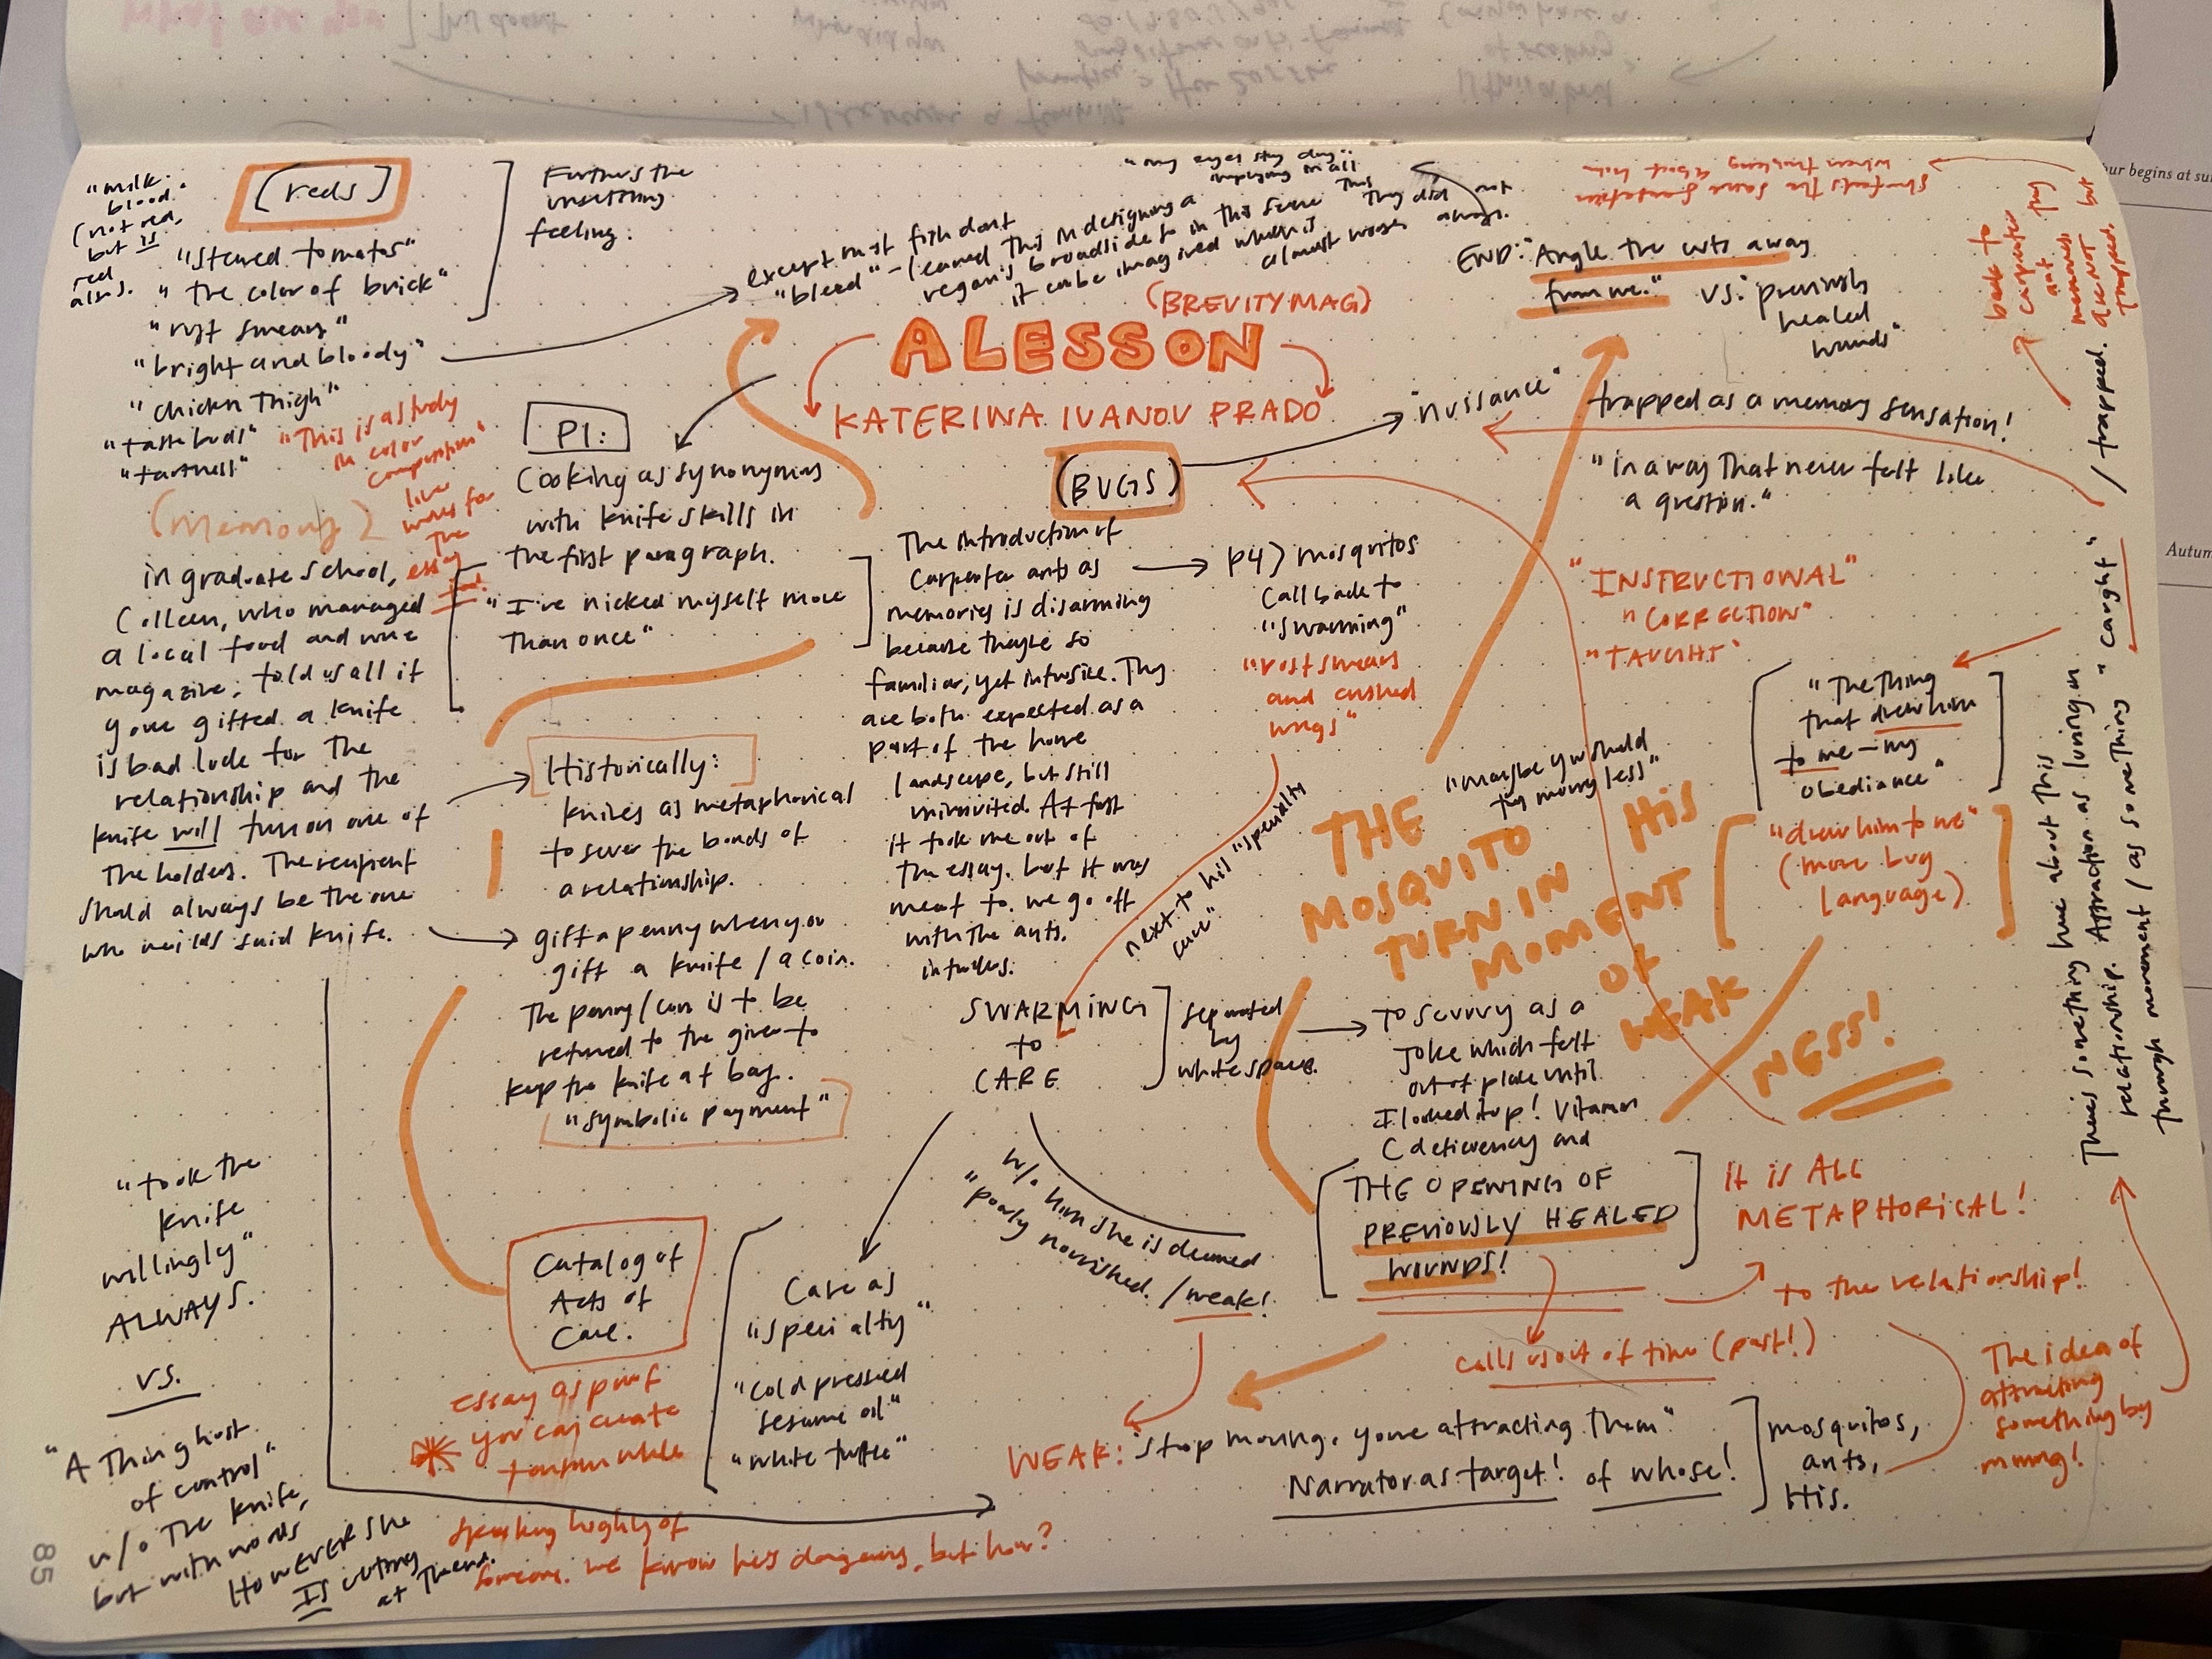 "milk.
blood."
(not red,
but is
red
also.
(reds)
"stewed tomatos"
"the color of brick"
"rust smears"
"bright and bloody"
"chicken thigh"
"taste buds"
"tartness"
Furthers the
unsettling
feeling.
"This is a study
in color
composition"
line
works for
the
essay
too!
"my eyes stay dry"
implying in all
this they did not
always.
except most fish dont
"bleed" - learned this in designing a
broadside so in this sense
it can be imagined which is
almost worse
(BREVITY MAG)
A LESSON
KATERINA IVANOV PRADO
she feels the same sensation
when thinking about him
back to
carpenter
ants
memories
are not
trapped.
but
they
END: "Angle the cuts away
from me." vs. "previously
healed
wounds"
(BUGS)
"nuisance"
trapped as a memory sensation!
"in a way that never felt like
a question."
P1:
Cooking as synonymous
with knife skills in
the first paragraph.
"I've nicked myself more
than once"
(Memory)
in graduate school,
Colleen, who managed
a local food and wine
magazine, told us all if
youre gifted a knife
is bad luck for the
relationship and the
knife will turn on one of
the holders. The recipient
should always be the one
who wields said knife.
Historically:
knives as metaphorical
to sever the bonds of
a relationship.
gift a penny when you
gift a knife / a coin.
The penny/coin is to be
returned to the giver to
keep the knife at bay.
"symbolic payment"
The introduction of
Carpenter ants as
memories is disarming
because they're so
familiar, yet intrusive. They
are both expected as a
part of the home
landscape, but still
uninvited. At first
it took me out of
the essay, but it was
meant to. we go off
with the ants.
intruders.
P4) mosquitos
Call back to
"swarming"
"rust smears
and crushed
wings"
next to his "specialty
care"
"INSTRUCTIONAL"
"CORRECTION"
"TAUGHT"
"The thing
that drew him
to me - my
obediance"
"drew him to me"
(more bug
language)
"maybe you should
try moving less"
THE
MOSQUITO
TURN IN HIS
MOMENT
OF
WEAK
NESS!
There's something here about this
relationship. Attraction as luring in
through movement / as something "caught"
/ trapped.
SWARMING
to
CARE
separated
by
whitespace.
to scurvy as a
joke which felt
out of place until
I looked it up! Vitamin
C deficiency and
THE OPENING OF
PREVIOUSLY HEALED
WOUNDS!
IT IS ALL
METAPHORICAL!
to the relationship!
calls us out of time (past!)
w/o him she is deemed
"poorly nourished. / weak!
"took the
knife
willingly"
ALWAYS.
vs.
"A Thing host
of control"
w/o the knife,
but with words
HOWEVER she
IS cutting
at Them.
Catalog of
Acts of
Care.
essay as proof
you can create
tension while
speaking highly of
someone. we know he's dangerous, but how?
Care as
"specialty"
"cold pressed
sesame oil"
"white truffle"
WEAK: "Stop moving. you're attracting them"
Narrator as target! of whose!
mosquitos,
ants,
His.
The idea of
attracting
something by
moving!
85
ur begins at su
Autum